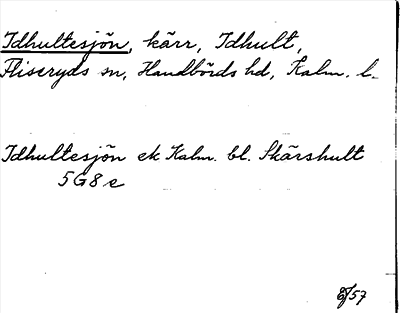 Idhultesjön, kärr, Idhult,
Fliseryds sn, Handbörds hd, Kalm. l.
Idhultesjön ek Kalm. bl. Skärshult
5G8e
57